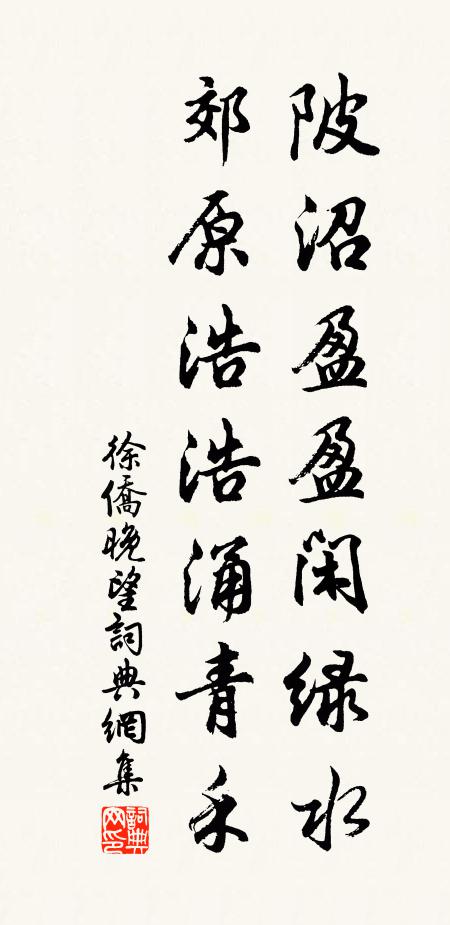 陂沼盈盈闲绿水
郊原浩浩涌青禾
徐僑晚望詞典網集
詞典网印